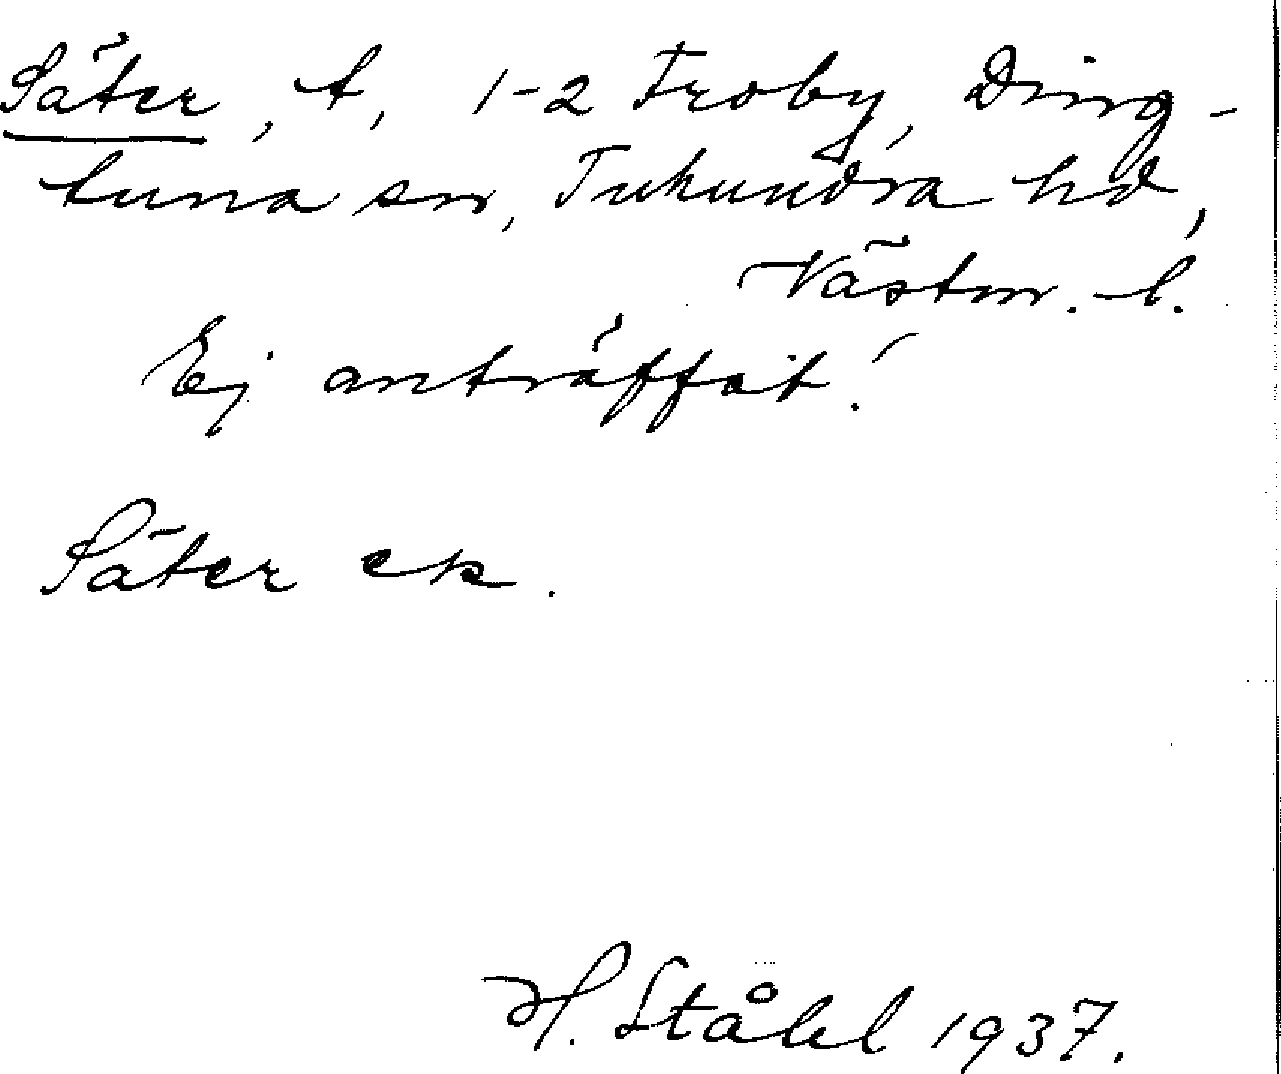 Säter, t, 1-2 Froby, Ding-
tuna sn, Tuhundra hd,
Västm. l.
Ej anträffat!
Säter ek.
H. Ståhl 1937.